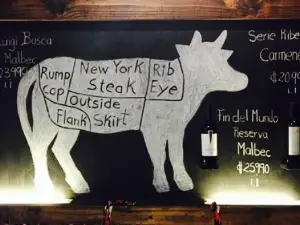 Luigi Bosca
Malbec
23990
Rump
cap
New York
Steak
Rib
Eye
Outside
Flank Skirt
Serie Ribe
Carmene
Fin del Mundo
Reserva
Malbec
$25990